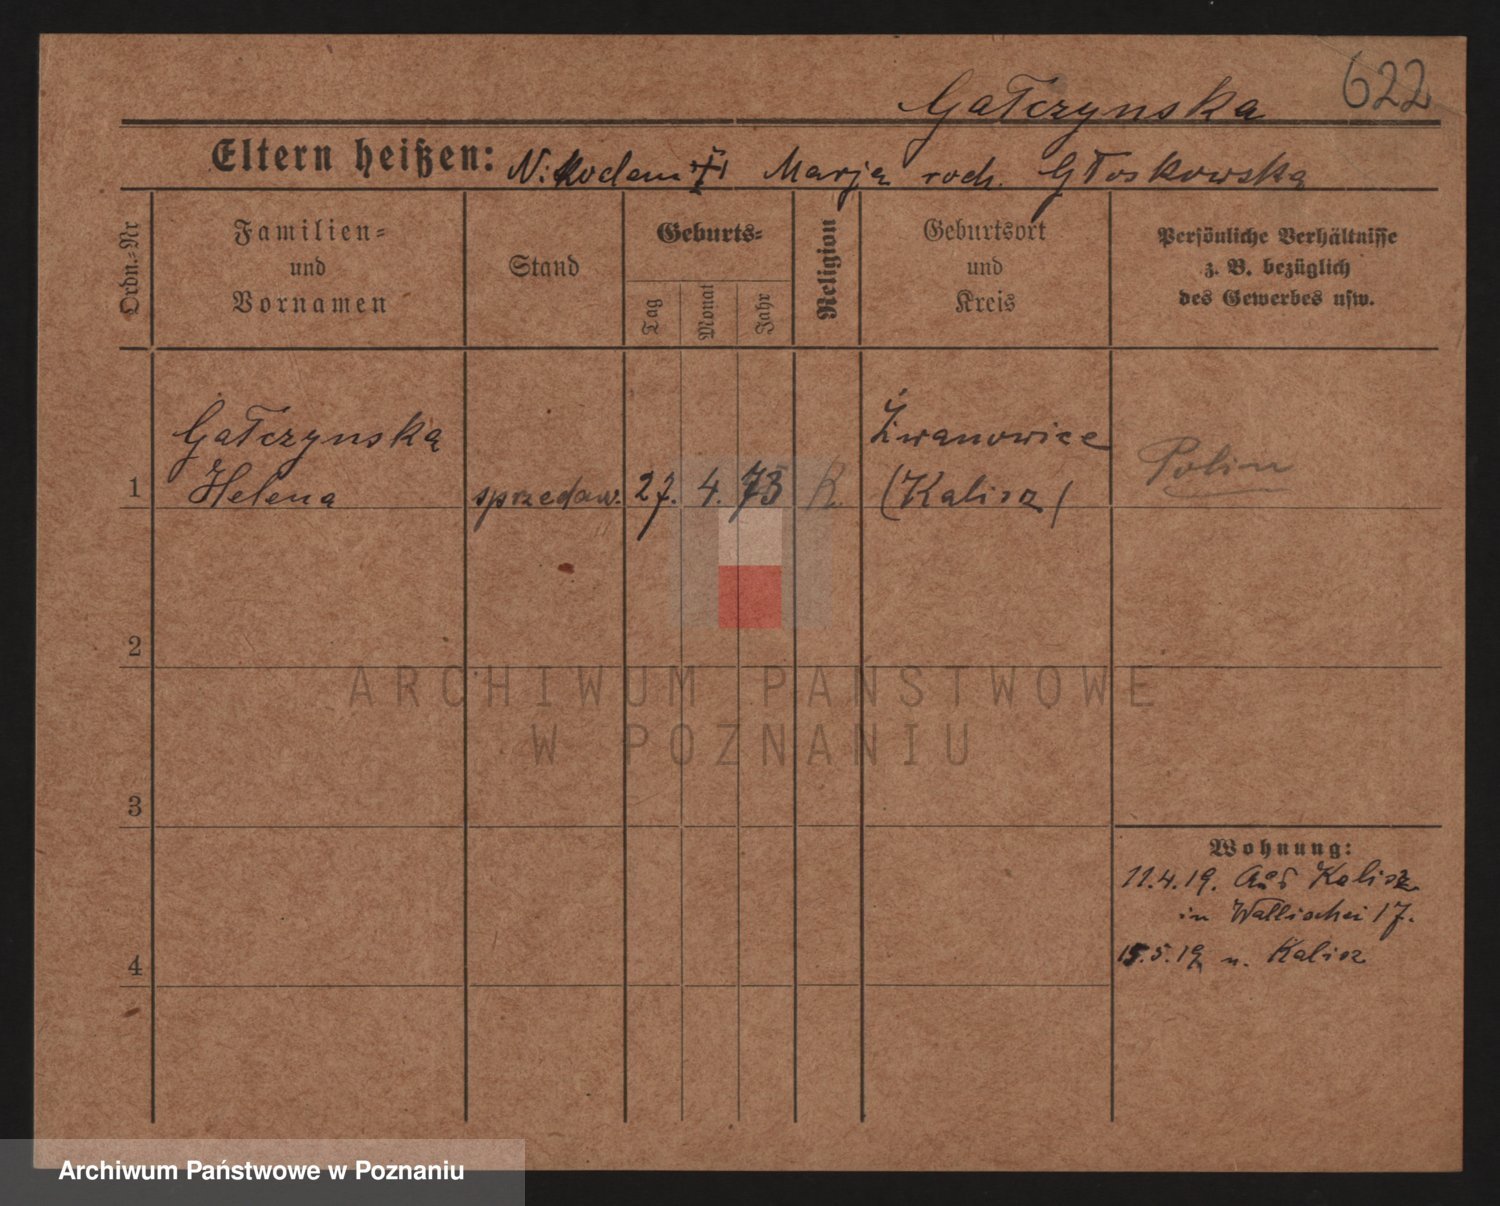 622
Gałczynska
Eltern heißen: Nikodem Marja rodz. Głoskowska
Ordn.-Nr
Familien- und Vornamen
Stand
Geburts-
Tag
Monat
Jahr
Religion
Geburtsort und Kreis
Persönliche Verhältnisse
z. B. bezüglich
des Gewerbes usw.
Gałczynska
Helena
1
sprzedaw. 27. 4. 73 K.
Żwanowice
(Kalisz)
Polin
2
ARCHIWUM PAŃSTWOWE
W POZNANIU
3
Wohnung:
11.4.19. Aus Kalisz
in Wallischei 17.
15.5.19 n. Kalisz
4
Archiwum Państwowe w Poznaniu